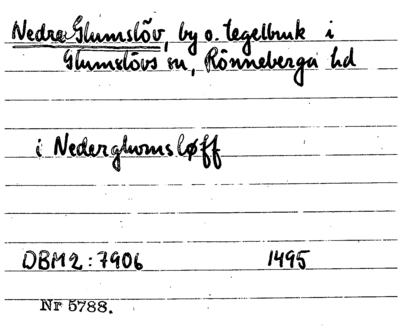 Nedre Glumslöv, by o. tegelbruk i
Glumslövs sn, Rönneberga hd
i Nederglumsløff
DBM 2:7906 1495
Nr 5788.